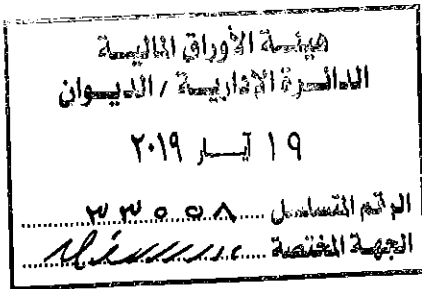 هيئـة الأوراق المالية
الدائـرة الإداريـة / الديـوان
١٩ آيـار ٢٠١٩
الرقم المتسلسل ٣٣٥٥٨
الجهـة المختصة